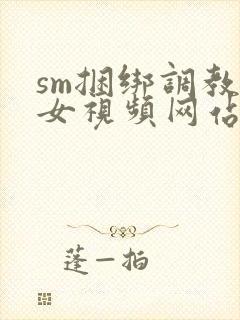 sm捆绑調教
女視頻网佔
蓬一拍